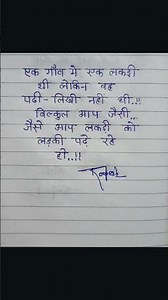 एक गाँव मे एक लकडी
थी लेकिन वह
पढी-लिखी नहीं थी..!!
बिल्कुल आप जैसी..
जैसे आप लकडी को
लड़की पढ़े रहे
हो..!!